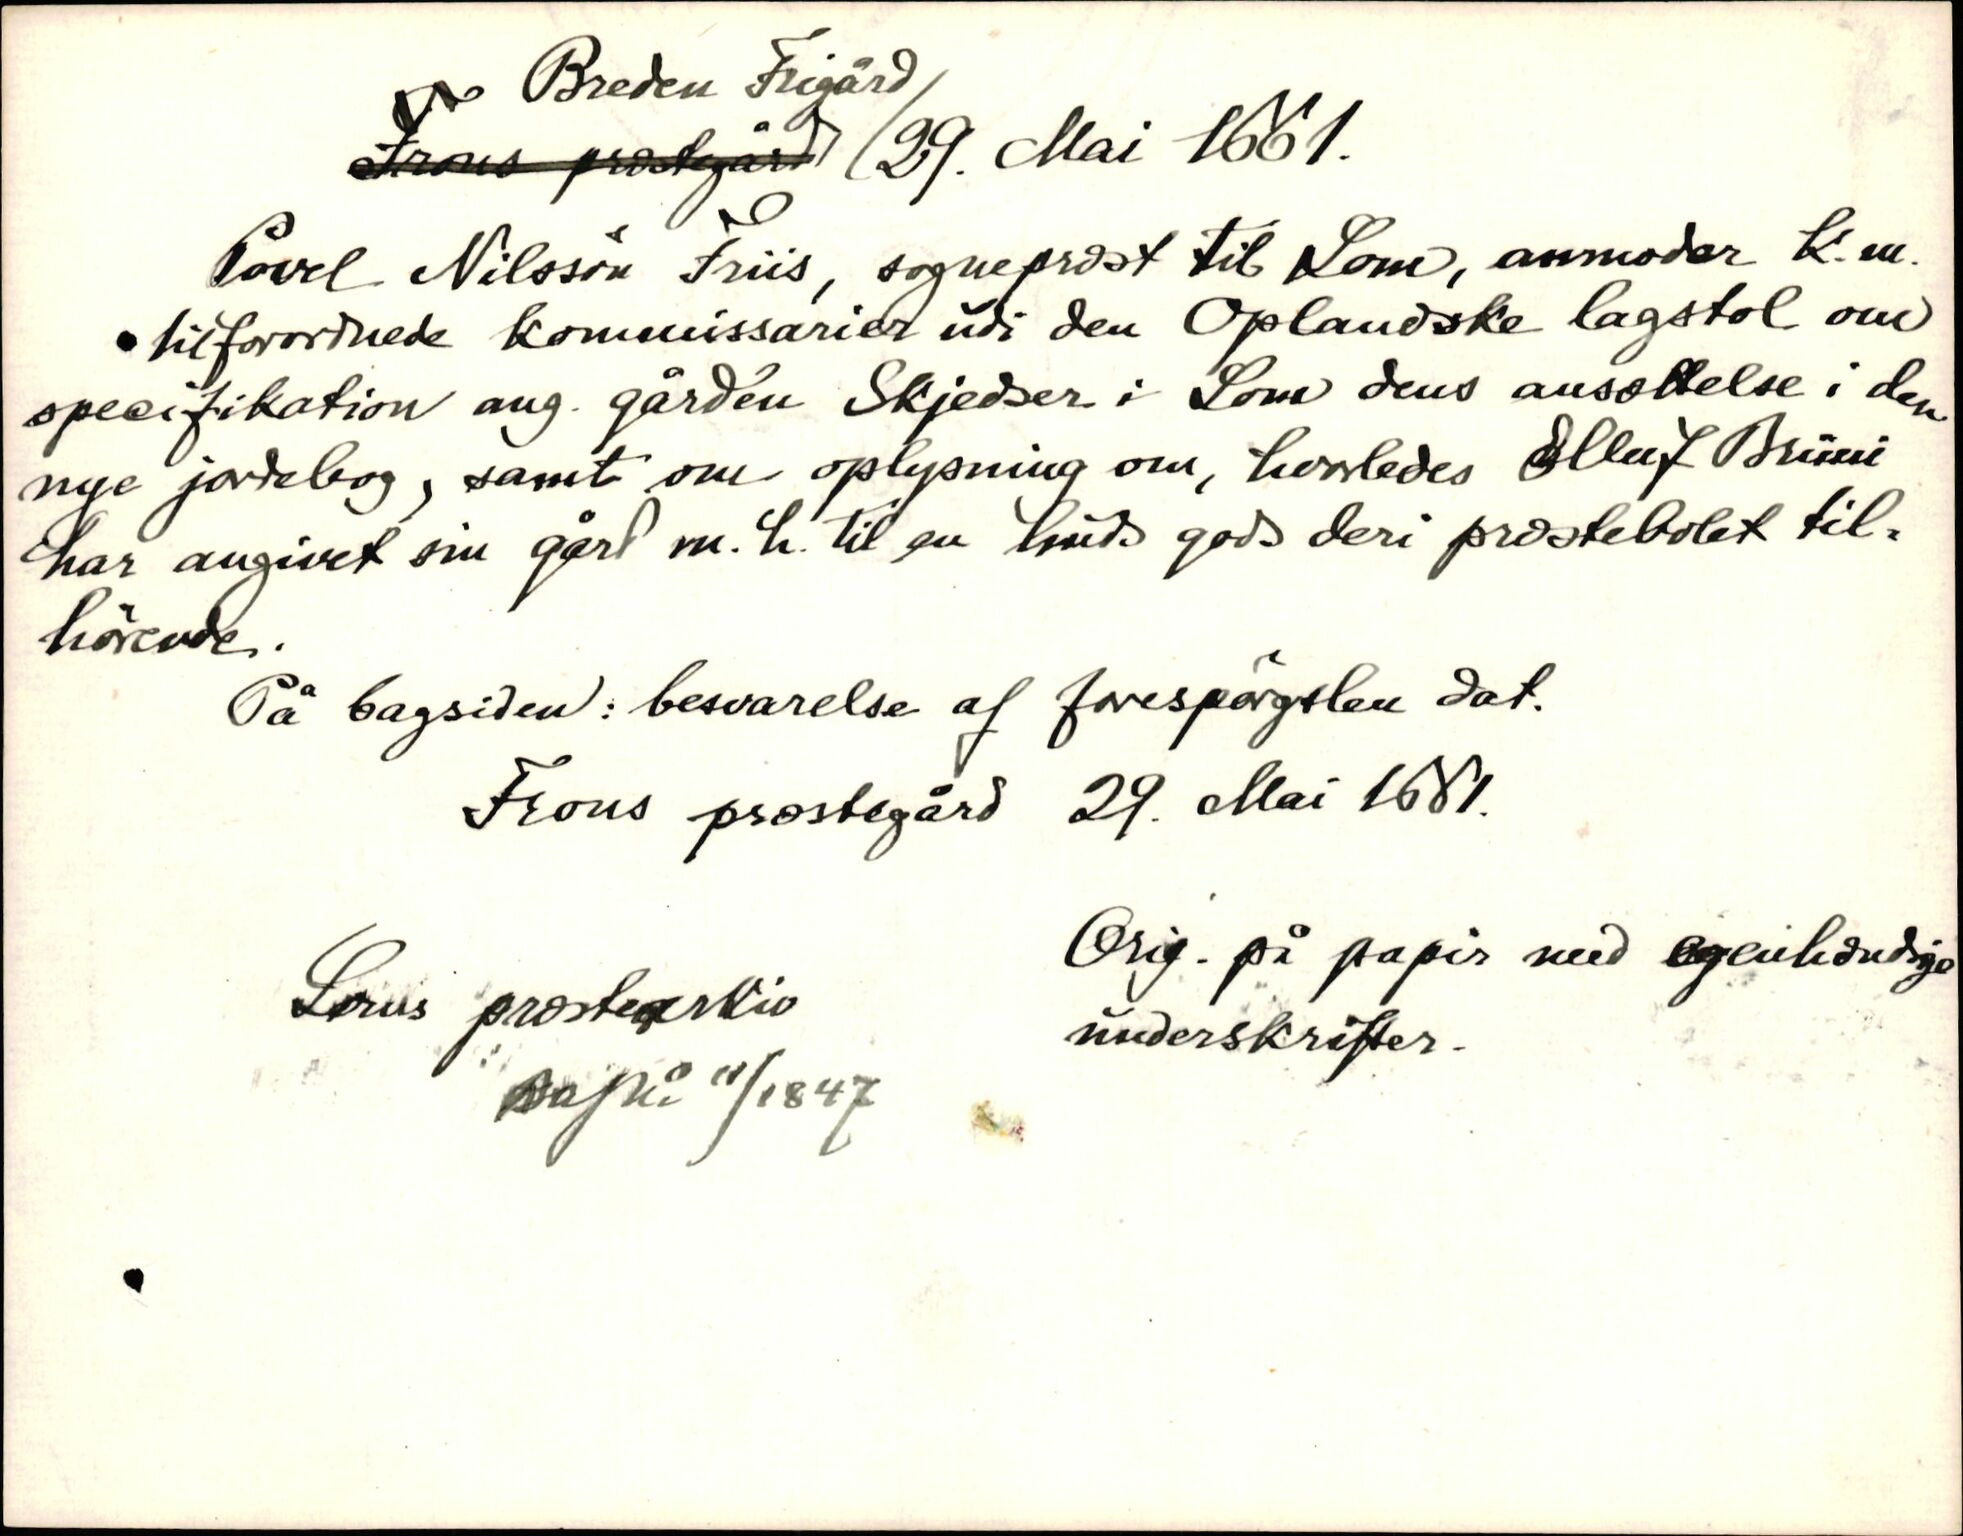 Breden Frigård
Frons præstegård 29. Mai 1661.
Povel Nilssön Friis, sognepræst til Lom, anmoder K. m.
tilforordnede kommissarier udi den Oplandske lagstol om
specifikation ang. gården Skjedser i Lom dens ansættelse i den
nye jordebog, samt om oplysning om, hvorledes Elluf Bruni
har angivet sin gård m. h. til en huds gods deri præstebolet til-
hörende.
På bagsiden: besvarelse af forespörgslen dat.
Frons præstegård 29. Mai 1661.
Orig. på papir med egenhændige
Loms præstearkiv
underskrifter.
1847